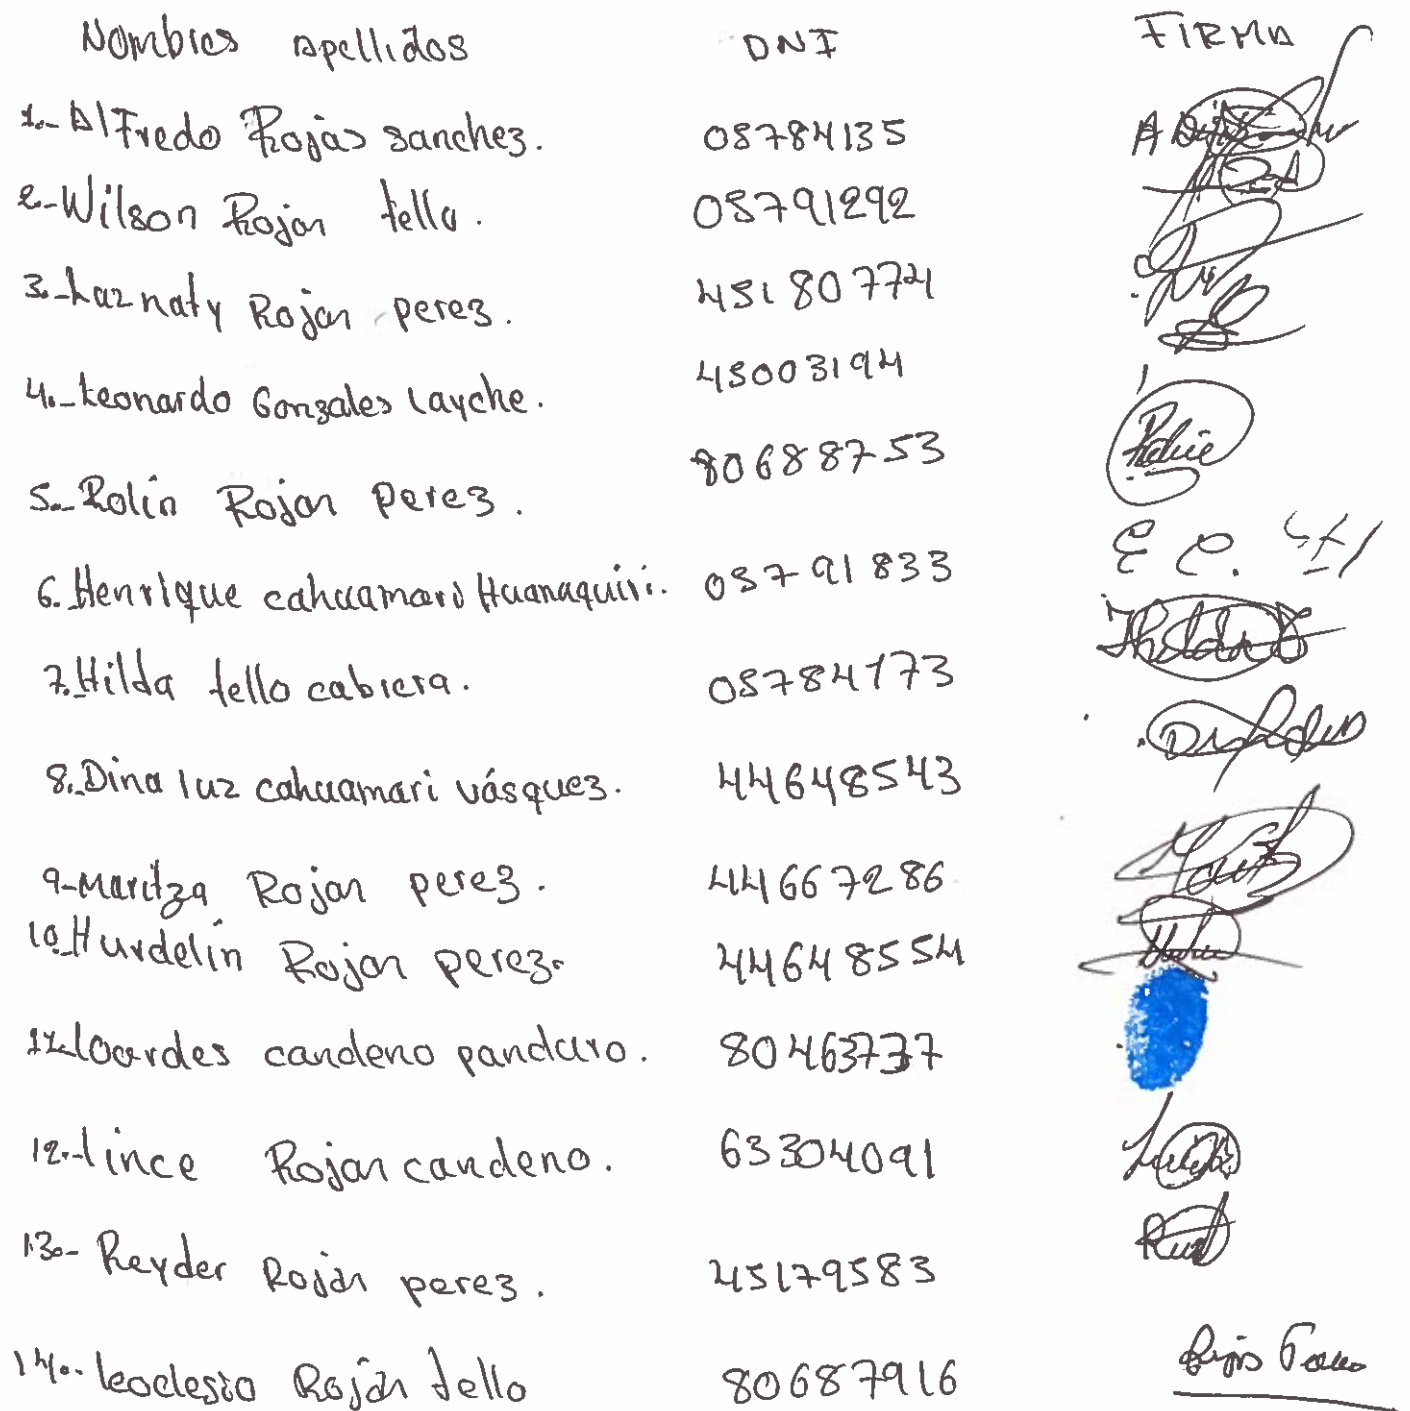 Nombres Apellidos DNI FIRMA
1.- Alfredo Rojas sanchez. 05784135
2.- Wilson Rojas tello. 05791292
3.- Luz naty Rojas perez. 45180774
4.- Leonardo Gonzales Layche. 45003194
5.- Rolin Rojas Perez. 80688753
6. Henrique cahuamari Huanaquiri. 05791833 E C.
7. Hilda tello cabrera. 05784173 Hilda
8. Dina luz cahuamari vásquez. 44648543
9- Maritza Rojas perez. 44667286
10. Hurdelin Rojas perez. 44648554
11. lourdes candeno panduro. 80463737
12.- lince Rojas candeno. 63304091
13.- Reyder Rojas perez. 45179583
14.- leodesio Rojas tello 80687916